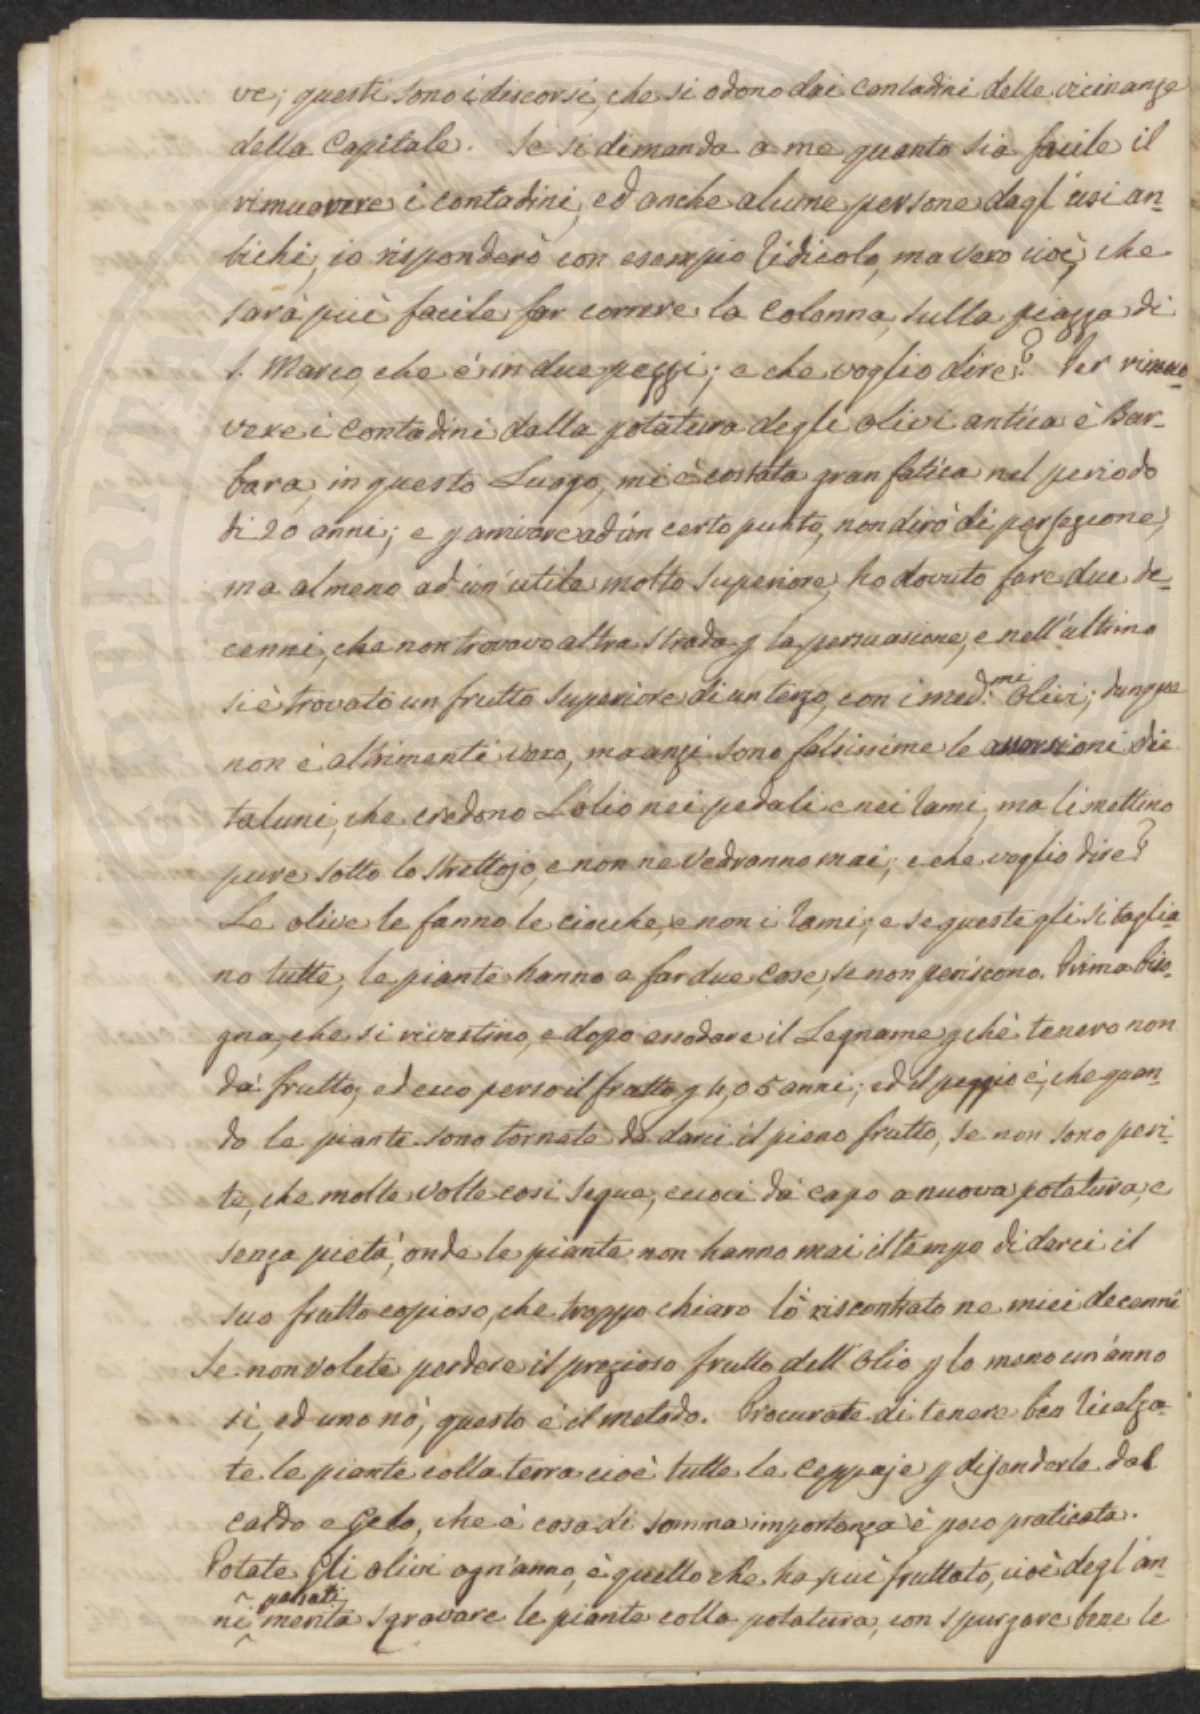 ve; questi sono i discorsi, che si odono dai contadini delle vicinanze
della Capitale. Se si dimanda a me quanto sia facile il
rimuovere i contadini, ed anche alcune persone dagl'usi an-
tichi, io risponderò con esempio ridicolo, ma vero cioè, che
sarà più facile far correre la Colonna, sulla piazza di
S. Marco, che è in due pezzi; e che voglio dire? Per rimuo-
vere i contadini dalla potatura degli olivi antica è Bar-
bara, in questo Luogo, mi è costata gran fatica nel periodo
di 20 anni; e p arrivare ad un certo punto, non dirò di perfezione,
ma almeno ad un'utile molto superiore, ho dovuto fare due de-
cenni, che non trovavo altra strada p la persuasione, e nell'ultimo
si è trovato un frutto superiore di un terzo, con i med:mi Olivi; dunque
non è altrimenti vero, ma anzi sono falsissime le asserzioni die
taluni, che credono L'olio nei pedali e nei rami, ma li mettino
pure sotto lo strettojo, e non ne vedranno mai; e che voglio dire?
Le olive le fanno le ciocche, e non i rami; e se queste gli si taglia-
no tutte, le piante hanno a far due cose, se non periscono. Prima biso-
gna, che si rivestino, e dopo assodare il Legname pchè tenero non
dà frutto, ed ecco perso il frutto p 4, o 5 anni; ed il peggio è, che quan-
do le piante sono tornate da darci il pieno frutto, se non sono peri-
te, che molte volte così segue, eccoci dà capo a nuova potatura, e
senza pietà, onde le piante non hanno mai il tempo di darci il
suo frutto copioso, che troppo chiaro lò riscontrato ne miei decenni
Se non volete perdere il prezioso frutto dell'Olio p lo meno un'anno
sì, ed uno nò, questo è il metodo. Procurate di tenere ben ricalza-
te le piante colla terra cioè tutte le Ceppaje p difenderle dal
caldo e Gelo, che è cosa di somma importanza è poco praticata.
Potate gli olivi ogn'anno, è quello che ha più fruttato, cioè degl'an-
ni passati merita sgravare le piante colla potatura, con spurgare bene le